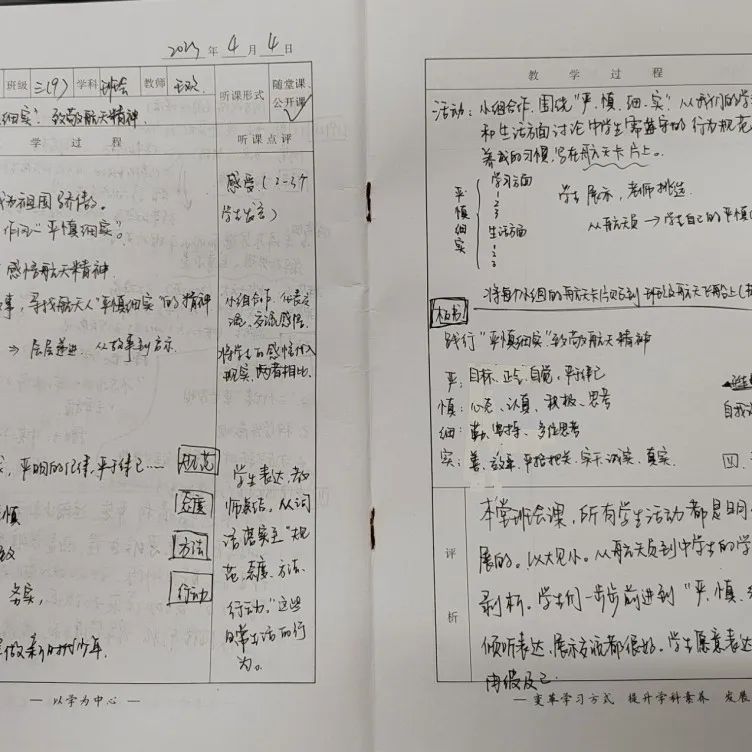 2023 年 4 月 4 日
班级 三(9) 学科 班会 教师
听课形式 随堂课、
公开课 ✓
细实”. 致敬航天精神.
学 过 程 听课点评
感受(2-3个
学生发言)
为祖国骄傲。
“严慎细实”。
感悟航天精神
事,寻找航天人“严慎细实”的精神
小组合作,代表交
流,交流感悟.
⇒ 层层递进.从故事到启示.
将学生的感悟代入
现实,两者相比.
严明的纪律,严于律己……
规范
态度
方法
行动
慎
务实,
做新时代少年.
学生表达,教
师总结,从词
语落实至“规
范、态度、方法、
行动.”这些
日常生活的行
为。
— 以学为中心 —
教 学 过 程
活动:小组合作,围绕“严、慎、细、实”从我们的学
和生活方面讨论中学生需要遵守的行为规范
养成的习惯,写在航天卡片上。
严慎细实
学习方面
1
2
3
生活方面
1
2
3
学生展示,老师挑选.
从航天员 → 学生自己的“严慎
将每个小组的航天卡片贴到班级航天飞船上
板书
践行“严慎细实”.致敬航天精神
严:目标、正气、自觉、严于律己
慎:心态、认真、积极、思考
细:勤、坚持、多位思考
实:善、效率、实干、诚实、真实.
自我
四、
评析
本堂班会课,所有学生活动都是
展的。以大见小。从航天员到中学生的学
剖析。学生们一步步前进到“严、慎、
倾听表达,展示交流都很好。学生愿意表达
由彼及己.
— 变革学习方式 提升学科素养 发展